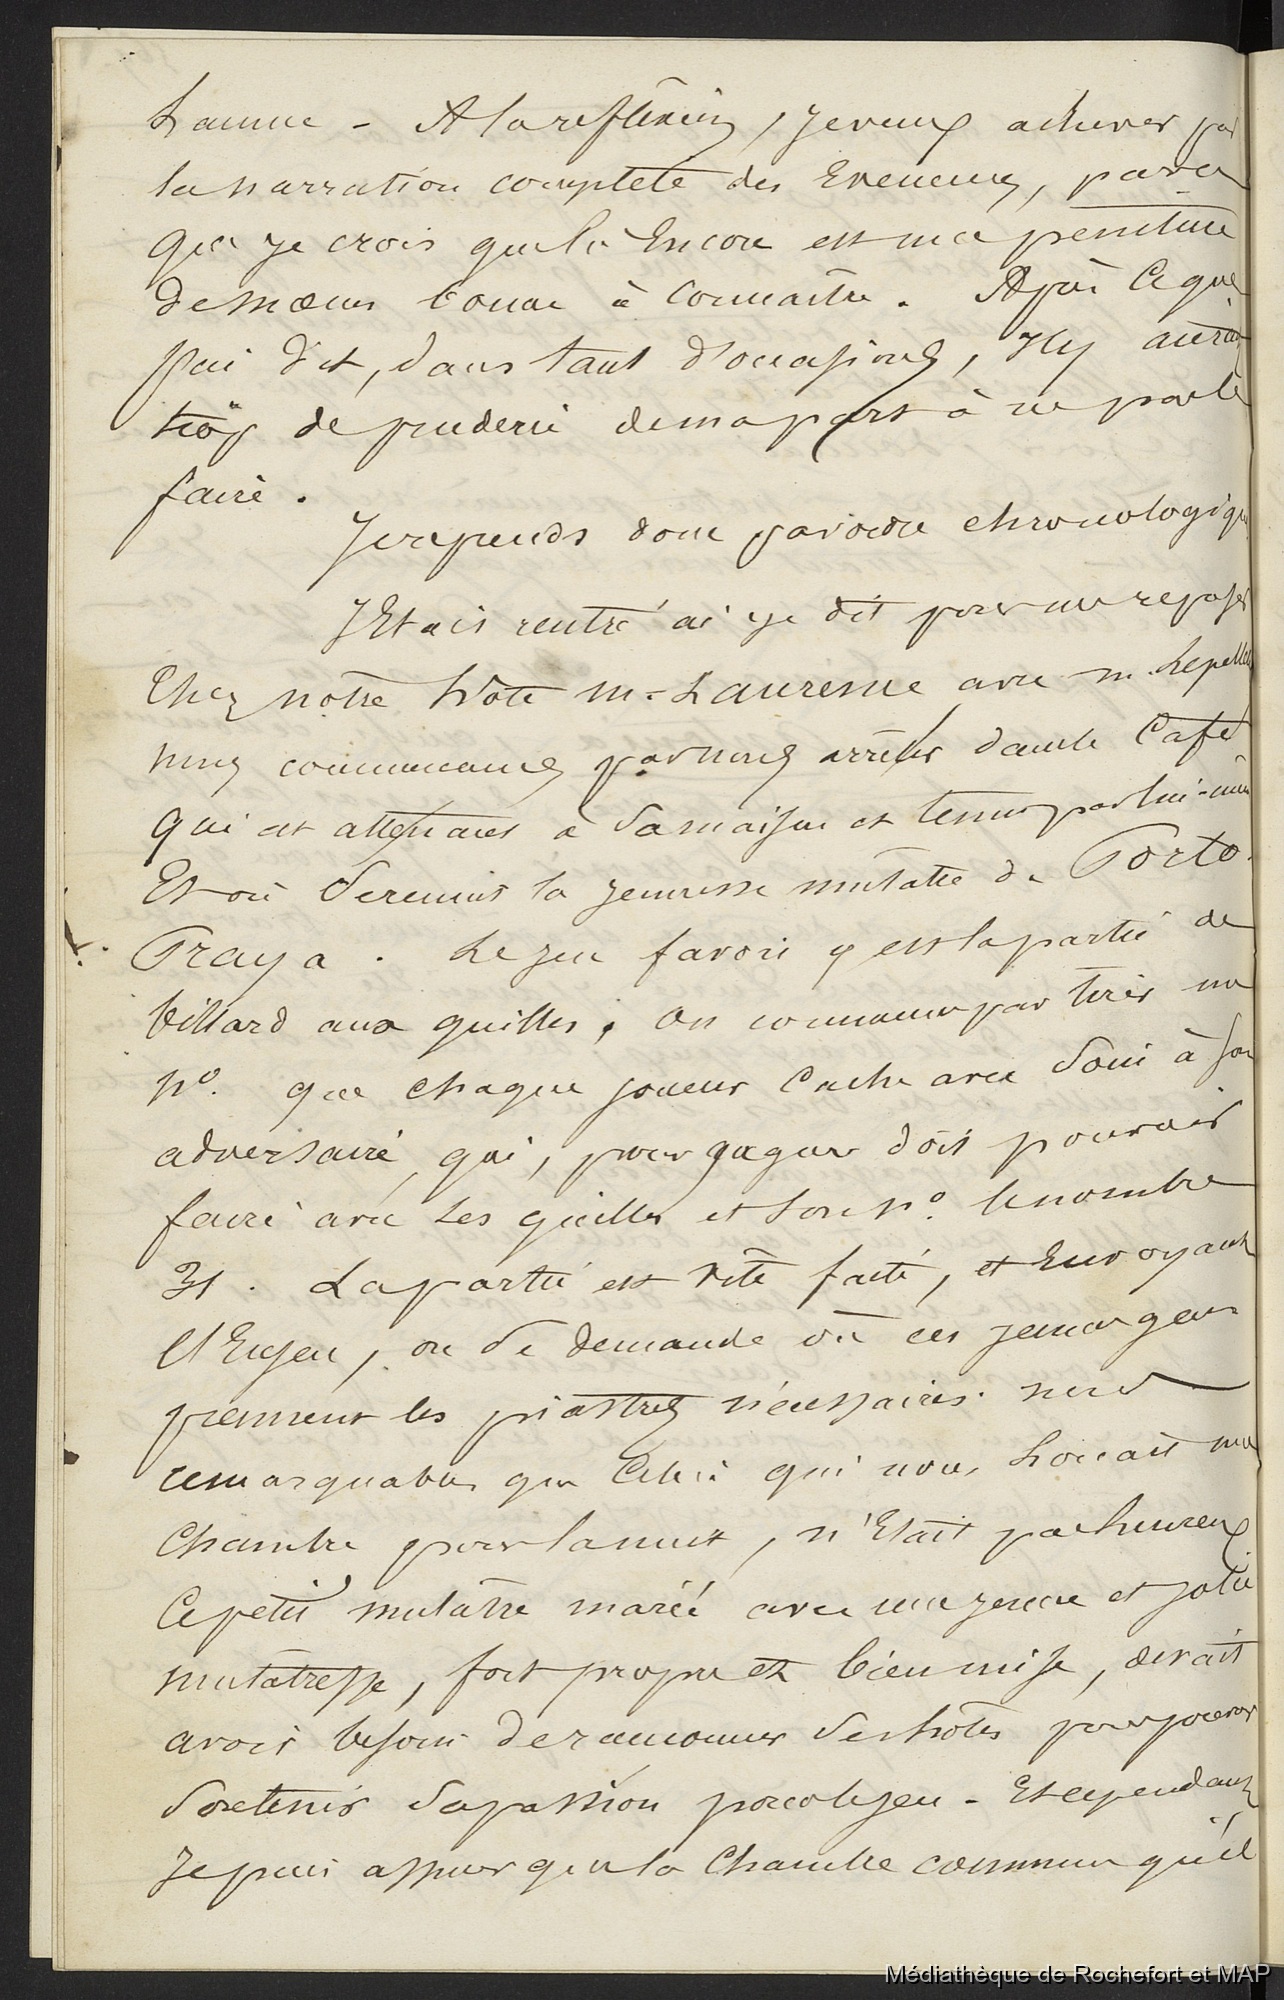 Laurence - A la reflexion, je veux achever par
la narration complete des Evenemens, parce
que je crois que là Encore est une peinture
de mœurs bonne à connaitre. Après ce que
j'ai dit, dans tant d'occasions, il y aurait
trop de pruderie de ma part à ne pas le
faire.
Je reprends donc par ordre chronologique
J'Etais rentré ai je dit pour me reposer
Chez notre hôte M. Lauresne avec M. Lepelle
nous commencames par nous arrêter dans le Café
qui est attenant à sa maison et tenu par lui-même
Et où se reunit la jeunesse mulatre de Porto
Praya. Le jeu favori y est la partie de
billard aux quilles, on commence par tirer un
No. que chaque joueur cache avec soin à son
adversaire, qui, pour gagner doit pouvoir
faire avec les quilles et son No. le nombre
31. La partie est vite faite, et En voyant
l'Enjeu, on se demande où ces jeunes gens
prennent les piastres nécessaires.
remarquable que celui qui nous louait une
Chambre pour la nuit, n'Etait pas heureux
Ce petit mulatre marié avec une jeune et jolie
mulatresse, fort propre et bien mise, devait
avoir besoin de ranconner ses hôtes pour pouvoir
soutenir sa passion pour le jeu - Et cependant
je puis assurer que la Chambre commune qu'il
Médiathèque de Rochefort et MAP